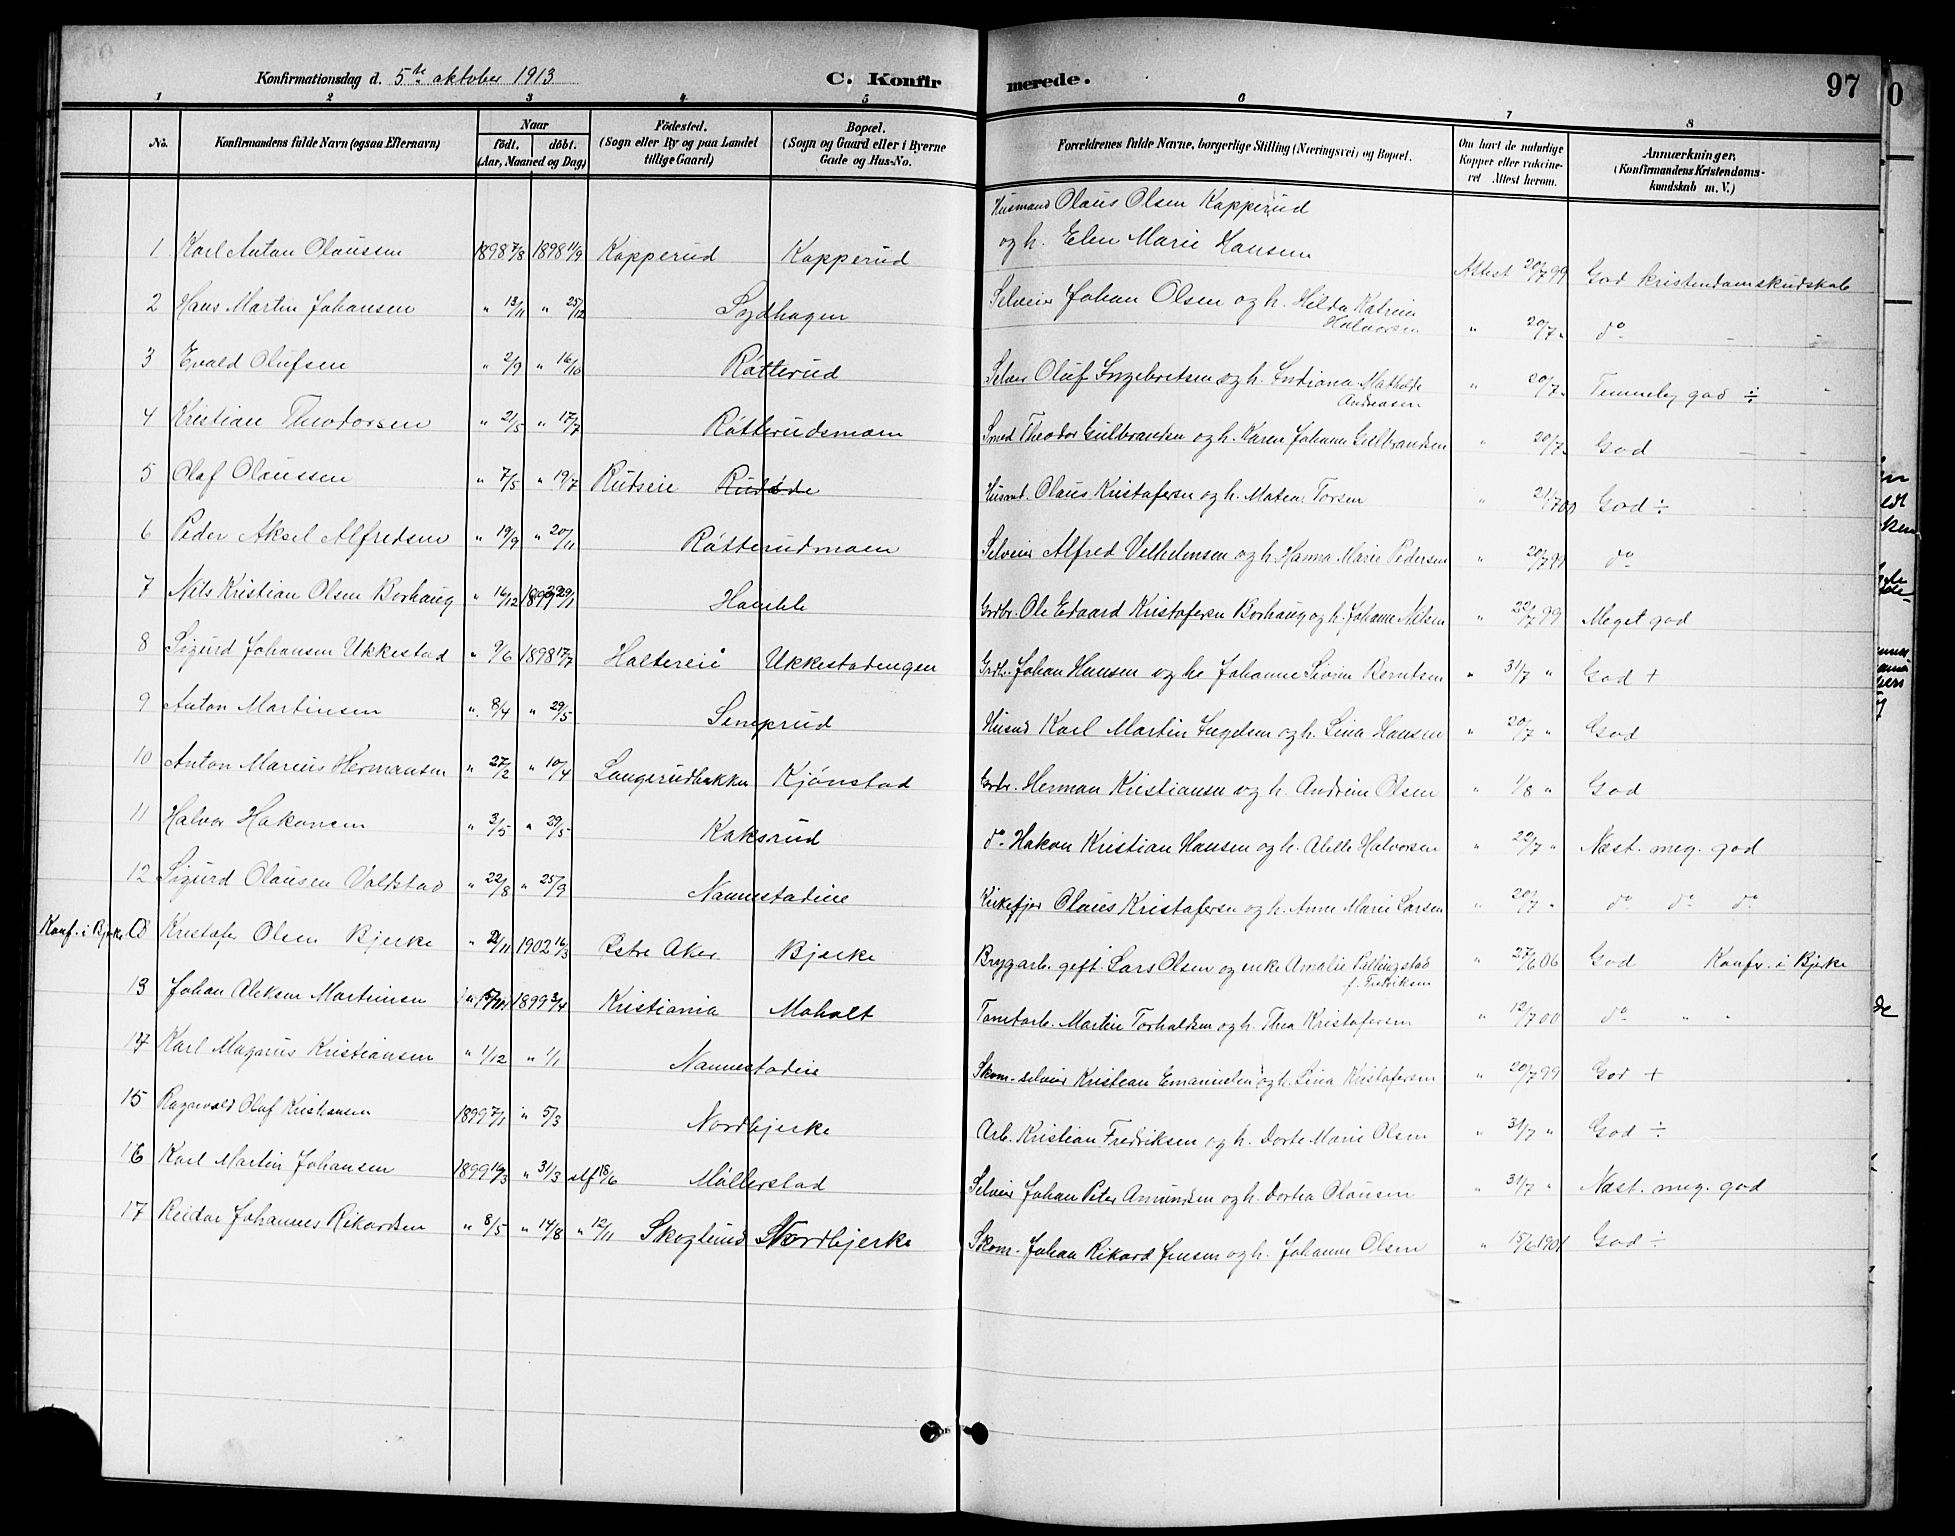 Konfirmationsdag d. 5te oktober 1913
C. Konfirmerede.
97
1 2 3 4 5 6 7 8
No.
Konfirmandens fulde Navn (ogsaa Efternavn)
Naar
födt. döbt.
(Aar, Maaned og Dag)
Födested.
(Sogn eller By og paa Landet tillige Gaard)
Bopæl.
(Sogn og Gaard eller i Byerne Gade og Hus-No.
Forældrenes fulde Navne, borgerlige Stilling (Næringsvei) og Bopæl.
Om havt de naturlige Kopper eller vakcineret Attest herom.
Anmærkninger,
(Konfirmandens Kristendomskundskab m. V.)
1 Karl Anton Olaussen 1898 7/8 1898 11/9 Kapperud Kapperud Husmand Olaus Olsen Kapperud og h. Elen Marie Hansen Attest 20/7 99 God kristendamskudskab
2 Hans Martin Johansen " 13/11 " 25/12 Sydhagen Selveier Johan Olsen og h. Hilda Katrine Halvorsen " 20/7 " do
3 Evald Olufsen " 2/9 " 16/10 Råtterud Selveier Oluf Ingebretsen og h. Indiana Mathilde Andreasen " 20/7 " Temmelig god ÷
4 Kristian Theodorsen " 21/5 " 17/7 Råtterudsmoen Smed Theodor Gulbrandsen og h. Karen Johanne Gulbrandsen " 20/7 " God
5 Olaf Olaussen " 7/5 " 19/7 Rudseie Husmd. Olaus Kristofersen og h. Matea Torsen " 21/7 00 God ÷
6 Peder Aksel Alfredsen " 19/9 " 20/11 Råtterudmoen Selveier Alfred Vilhelmsen og h. Hanna Marie Pedersen " 20/7 99 do
7 Nils Kristian Olsen Borhaug " 16/12 1899 29/1 Grdbr. Ole Edvard Kristofersen Borhaug og h. Johanne Nilsen " 22/7 99 Meget god
8 Sigurd Johansen Ukkestad " 9/6 1898 17/7 Haltereie Ukkestadengen Grdbr. Johan Hansen og h. Johanne Sivrine Berntsen " 31/7 " God +
9 Anton Martinsen " 8/4 " 29/5 Semprud Husmd Karl Martin Engelsen og h. Lina Hansen " 20/7 " God
10 Anton Marius Hermansen " 27/2 " 10/4 Langerudbakken Kjønstad Grdbr. Herman Kristiansen og h. Andrine Olsen " 1/8 " God
11 Halvor Hakonsen " 3/5 " 29/5 Kaksrud do Hakon Kristian Hansen og h. Alette Halvorsen " 22/7 " Næst. meg. god
12 Sigurd Olausen Valstad " 22/8 " 25/9 Nannestadeie Kirketjer Olaus Kristofersen og h. Anne Marie Larsen " 20/7 " do do do
Konf. i Bjerke Kristofer Olsen Bjerke 1902 16/3 Østre Aker Bjerke Brygarb. gift. Lars Olsen og enke Amalie f. Fredriksen " 27/6 06 God Konfr. i Bjerke
13 Johan Aleksen Martinsen 1899 3/4 Kristiania Moholt Tomtarb. Martin Torhaldsen og h. Thea Kristofersen " 12/7 00 do " "
14 Karl Magnus Kristiansen " 1/12 " 1/1 Nannestadeie Skom.-selveier Kristian Emanuelsen og h. Lina Kristofersen " 20/7 99 God +
15 Ragnvald Olaf Kristiansen 1899 7/1 " 5/3 Nordbjerke Arb. Kristian Fredriksen og h. Dorte Marie Olsen " 31/7 " God ÷
16 Karl Martin Johansen 1899 16/3 " 31/3 18/6 Møllerstad Selveier Johan Peter Amundsen og h. Dortea Olausen " 31/7 " Næst. meg. god
17 Reidar Johannes Rikardsen " 8/5 " 14/8 " 12/11 Skoglund Nordbjerke Skom. Johan Rikard Jensen og h. Johanne Olsen " 15/6 1901 God ÷